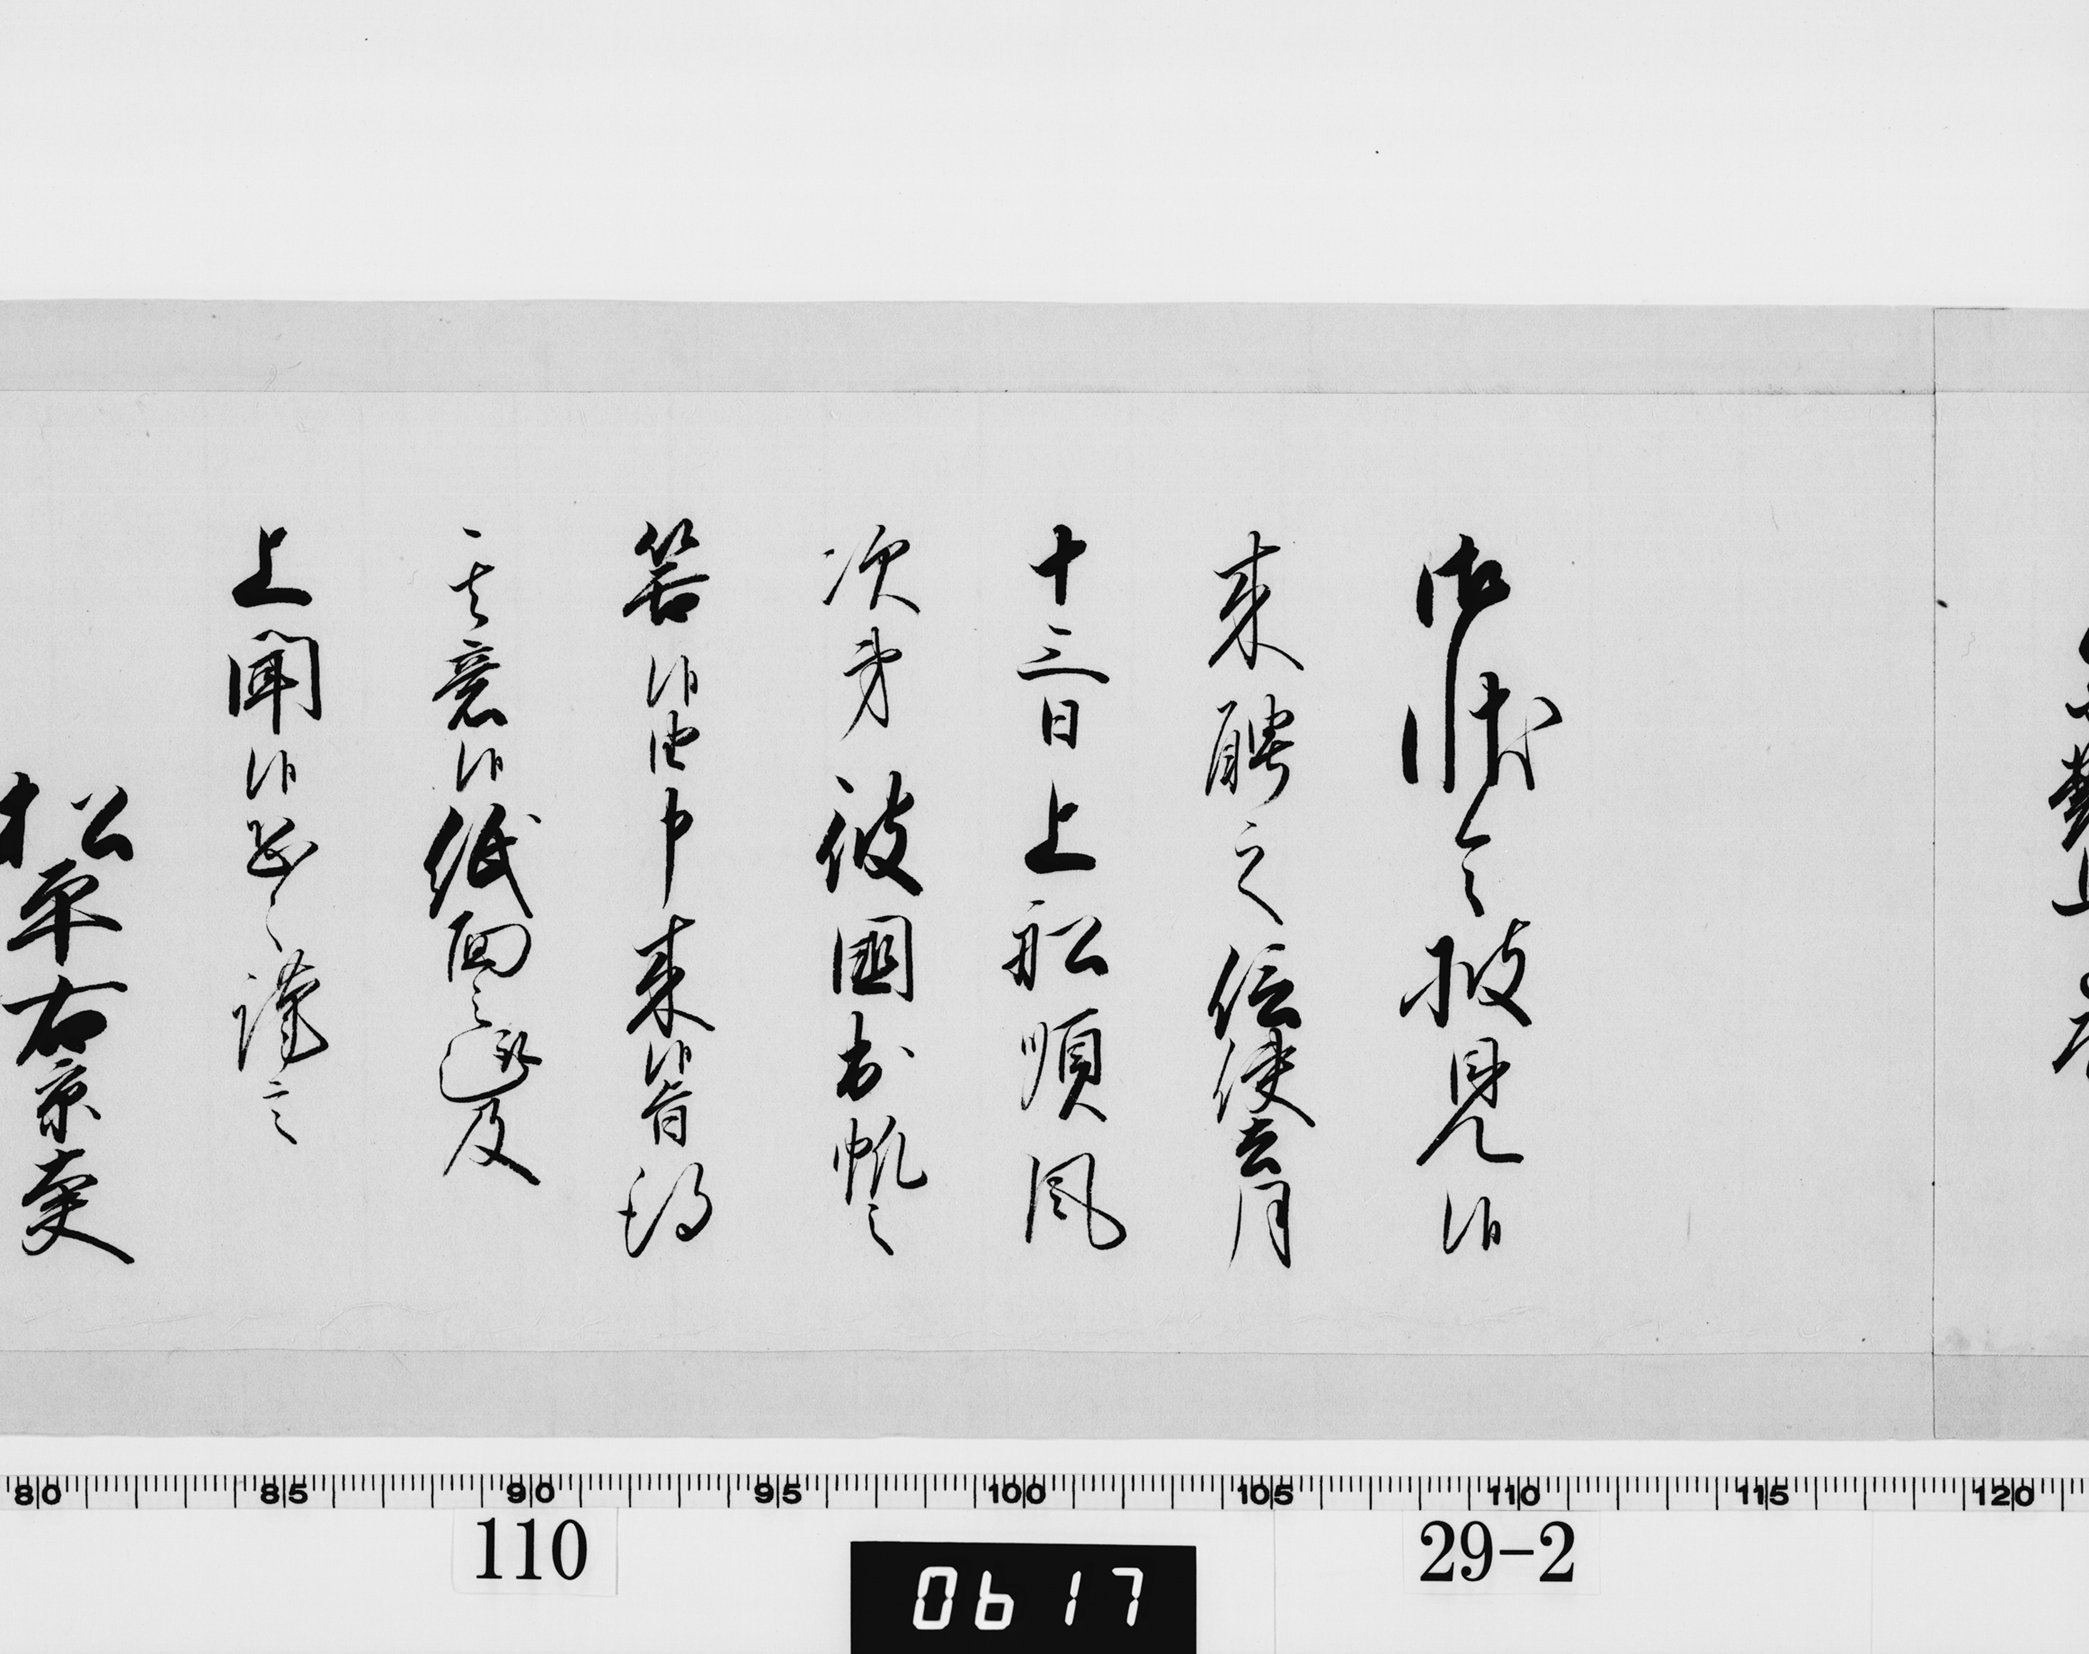 御状令披見候
来聘之信使去月
十三日上船順風
次第彼國出帆之
筈候由申来候旨得
其意候紙面之趣及
上聞候恐々謹言
松平右京大夫
80 85 90 95 100 105 110 115 120
110
0617
29-2